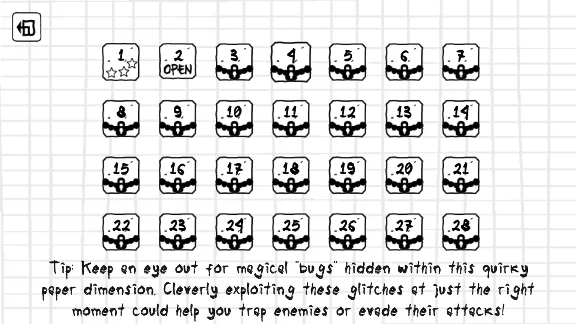 1 2 3 4 5 6 7
OPEN
8 9 10 11 12 13 14
15 16 17 18 19 20 21
22 23 24 25 26 27 28
Tip: Keep an eye out for magical "bugs" hidden within this quirky
paper dimension. Cleverly exploiting these glitches at just the right
moment could help you trap enemies or evade their attacks!